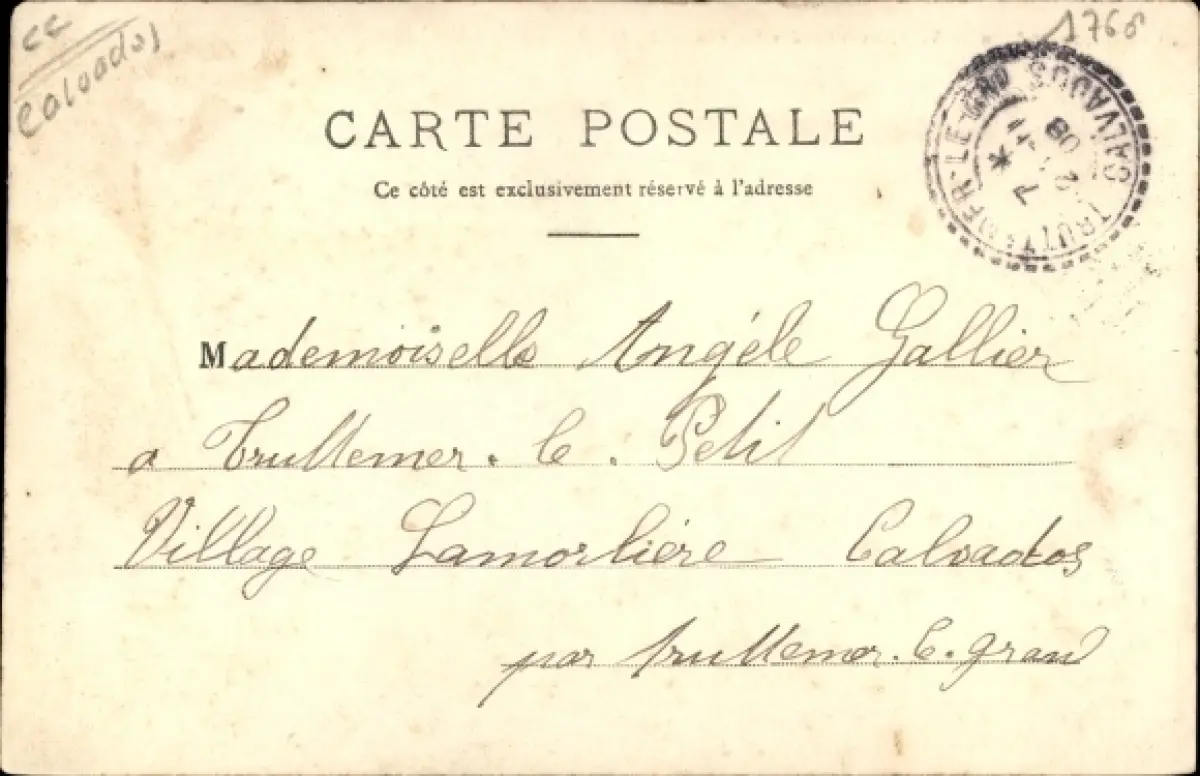 cc
Calvados
1766
CARTE POSTALE
Ce côté est exclusivement réservé à l'adresse
TRUTTEMER-LE-GRD CALVADOS
Mademoiselle Angéle Gallier
a Truttemer. le. Petit
Village Lamorlière Calvados
par truttemer. le. grand